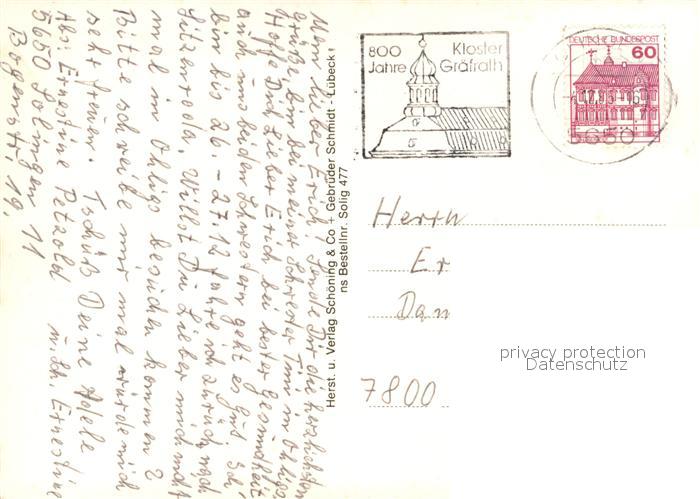 Mein lieber Erich! Sende Dir die herzlichsten
Grüße, bin bei meiner Schwester Tine in Ohligs
Hoffe Dich lieber Erich bei bester Gesundheit
auch uns beiden Schwestern geht es gut. Ich
bin bis 26. - 27.12 fahre ich zurück nach
Willst Du lieber mich nicht
mal in Ohligs besuchen kommen?
Bitte schreibe mir mal würde mich
sehr freuen. Tschüß Deine Adele
Abs: Ernestine Petzold u. Sch. Ernestine
5650 Solingen 11
Bogenstr. 19.
Herst. u. Verlag Schöning & Co + Gebrüder Schmidt - Lübeck
ns Bestellnr. Solig 477
800 Jahre
Kloster Gräfrath
DEUTSCHE BUNDESPOST
60
5650
Herrn
Er
Dan
7800
privacy protection
Datenschutz